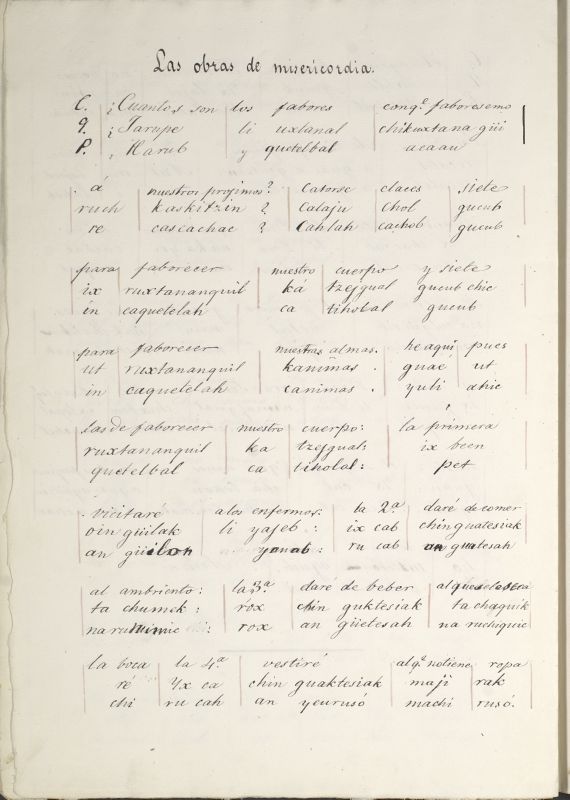 Las obras de misericordia.
C. ¿Cuantos son los fabores conq.e faboresemo
Q. ¿Jarupe li uxtanal chikuxtana güi
P. ¿Harub y quetelbal acaau
á nuestros projimos? catorse claces siete
ruch kaskitzin? calaju chol gucub
re cascachac? cahlah cachob gucub
para faborecer nuestro cuerpo y siete
ix ruxtananquil ká tzejgual gucub chic
in caquetelah ca tiholal gucub
para faborecer nuestras almas. he aqui pues
ut ruxtananquil kanimas. guaé ut
in caquetelah canimas. yuli ahic
las de faborecer nuestro cuerpo: la primera
ruxtananquil ka tzejgual: ix been
quetelbal ca tiholal: pet
vicitaré a los enfermos: la 2.a daré de comer
oin güilak li yajeb: ix cab chin guatesiak
an güilon yonab: ru cab an guatesah
al ambriento: la 3.a daré de beber
ta chumek: róx chin guktesiak ta chaquik
rox an güetesah na ruchiquic
la boca la 4.a vestiré alq.e notiene ropa
ré Yx ca chin guaktesiak maji rak
chi ru cah an yeurusó machi rusó.